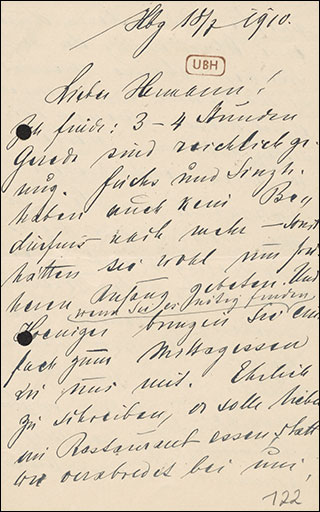 Hbg 18/7 1910.
UBH
Lieber Hermann!
Ich finde: 3-4 Stunden
Gerede sind reichlich ge-
nug. Fuchs und Singh.
haben auch kein Be-
dürfnis nach mehr – sonst
hätten sie wohl um frü-
heren Anfang gebeten. Und
wenn Sie es nötig finden
Hoeniger bringen Sie ein-
fach zum Mittagessen
zu uns mit. Ehrlich
zu schreiben, er solle lieber
im Restaurant essen, statt
wie verabredet bei uns,
122